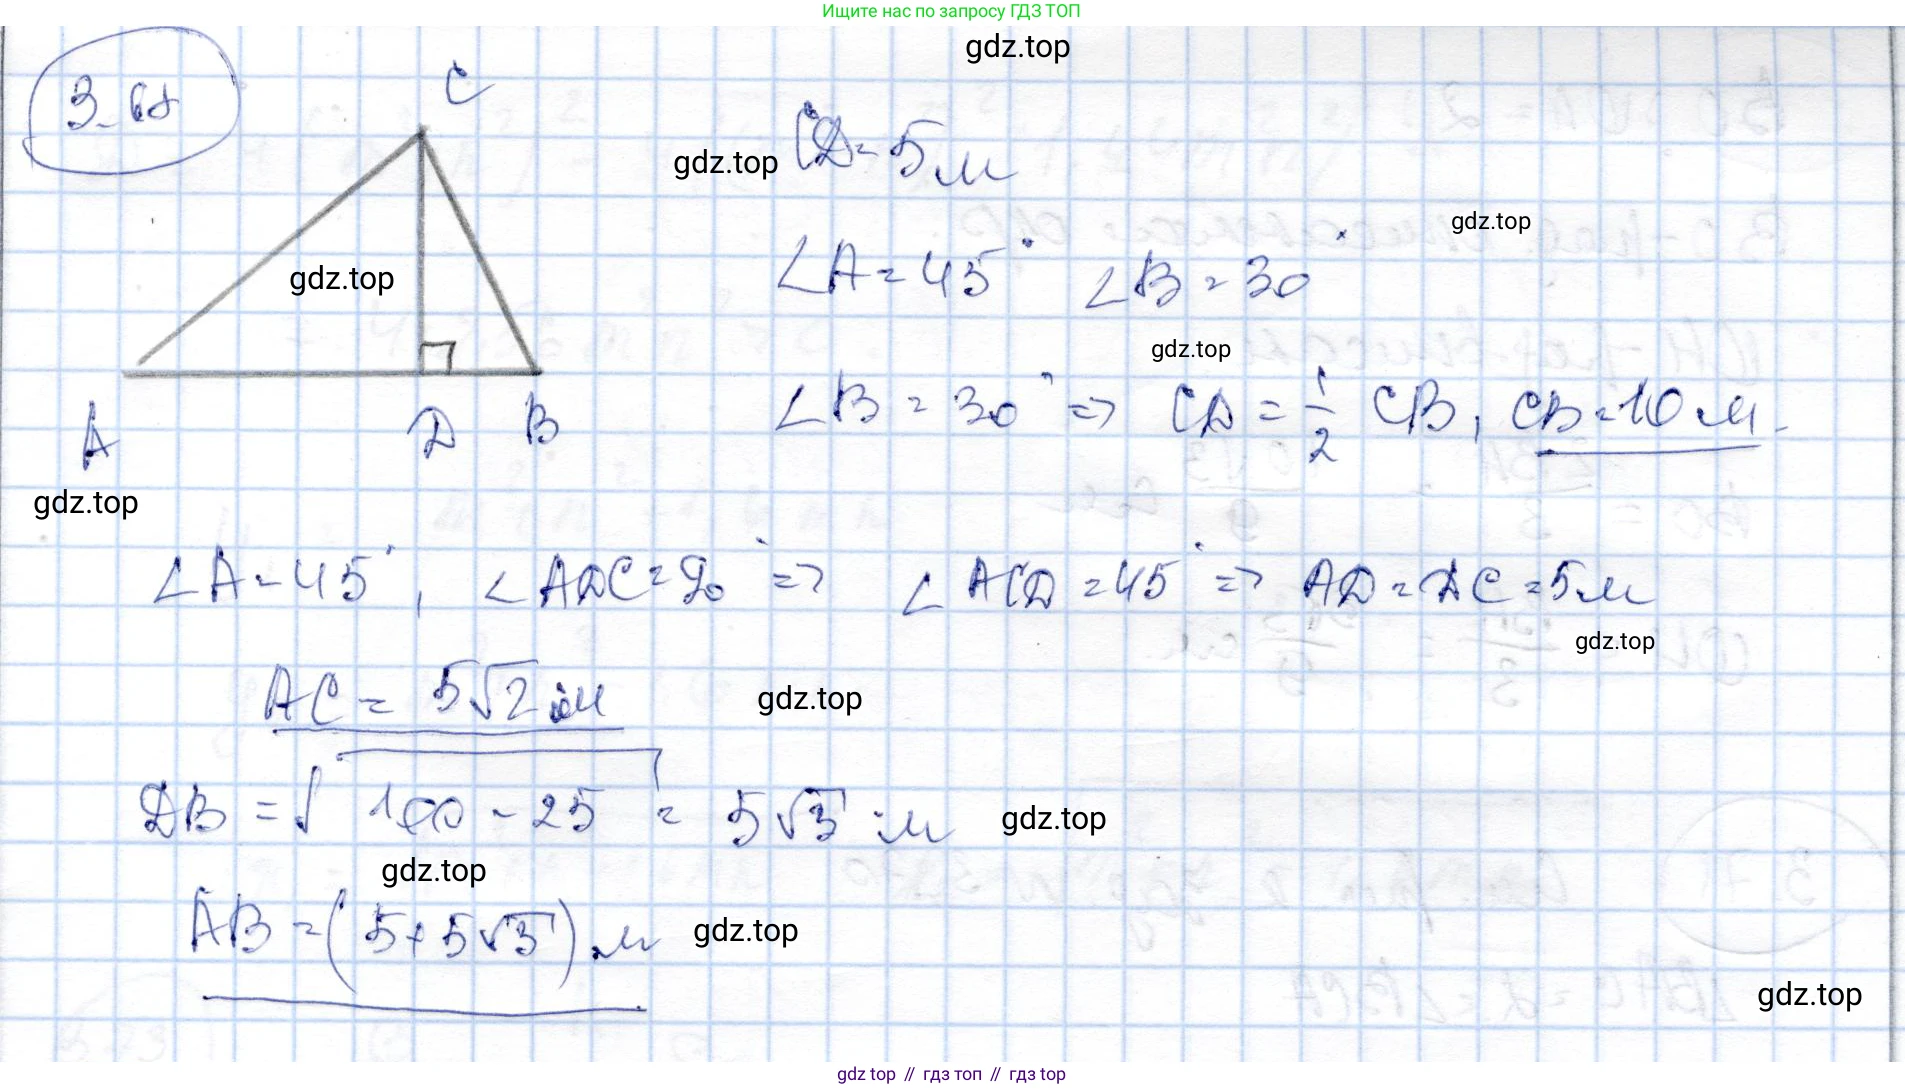 Ищите нас по запросу ГДЗ ТОП
gdz.top
3.68
C
CD = 5 м
gdz.top
gdz.top
∠A = 45° ∠B = 30°
gdz.top
gdz.top
∠B = 30° => CD = 1/2 CB, CB = 10 м.
A D B
gdz.top
∠A = 45°, ∠ADC = 90° => ∠ACD = 45° => AD = DC = 5 м
gdz.top
AC = 5√2 м
gdz.top
DB = √100 - 25 = 5√3 м
gdz.top
gdz.top
AB = (5 + 5√3) м
gdz.top
gdz.top
gdz top // гдз топ // гдз top